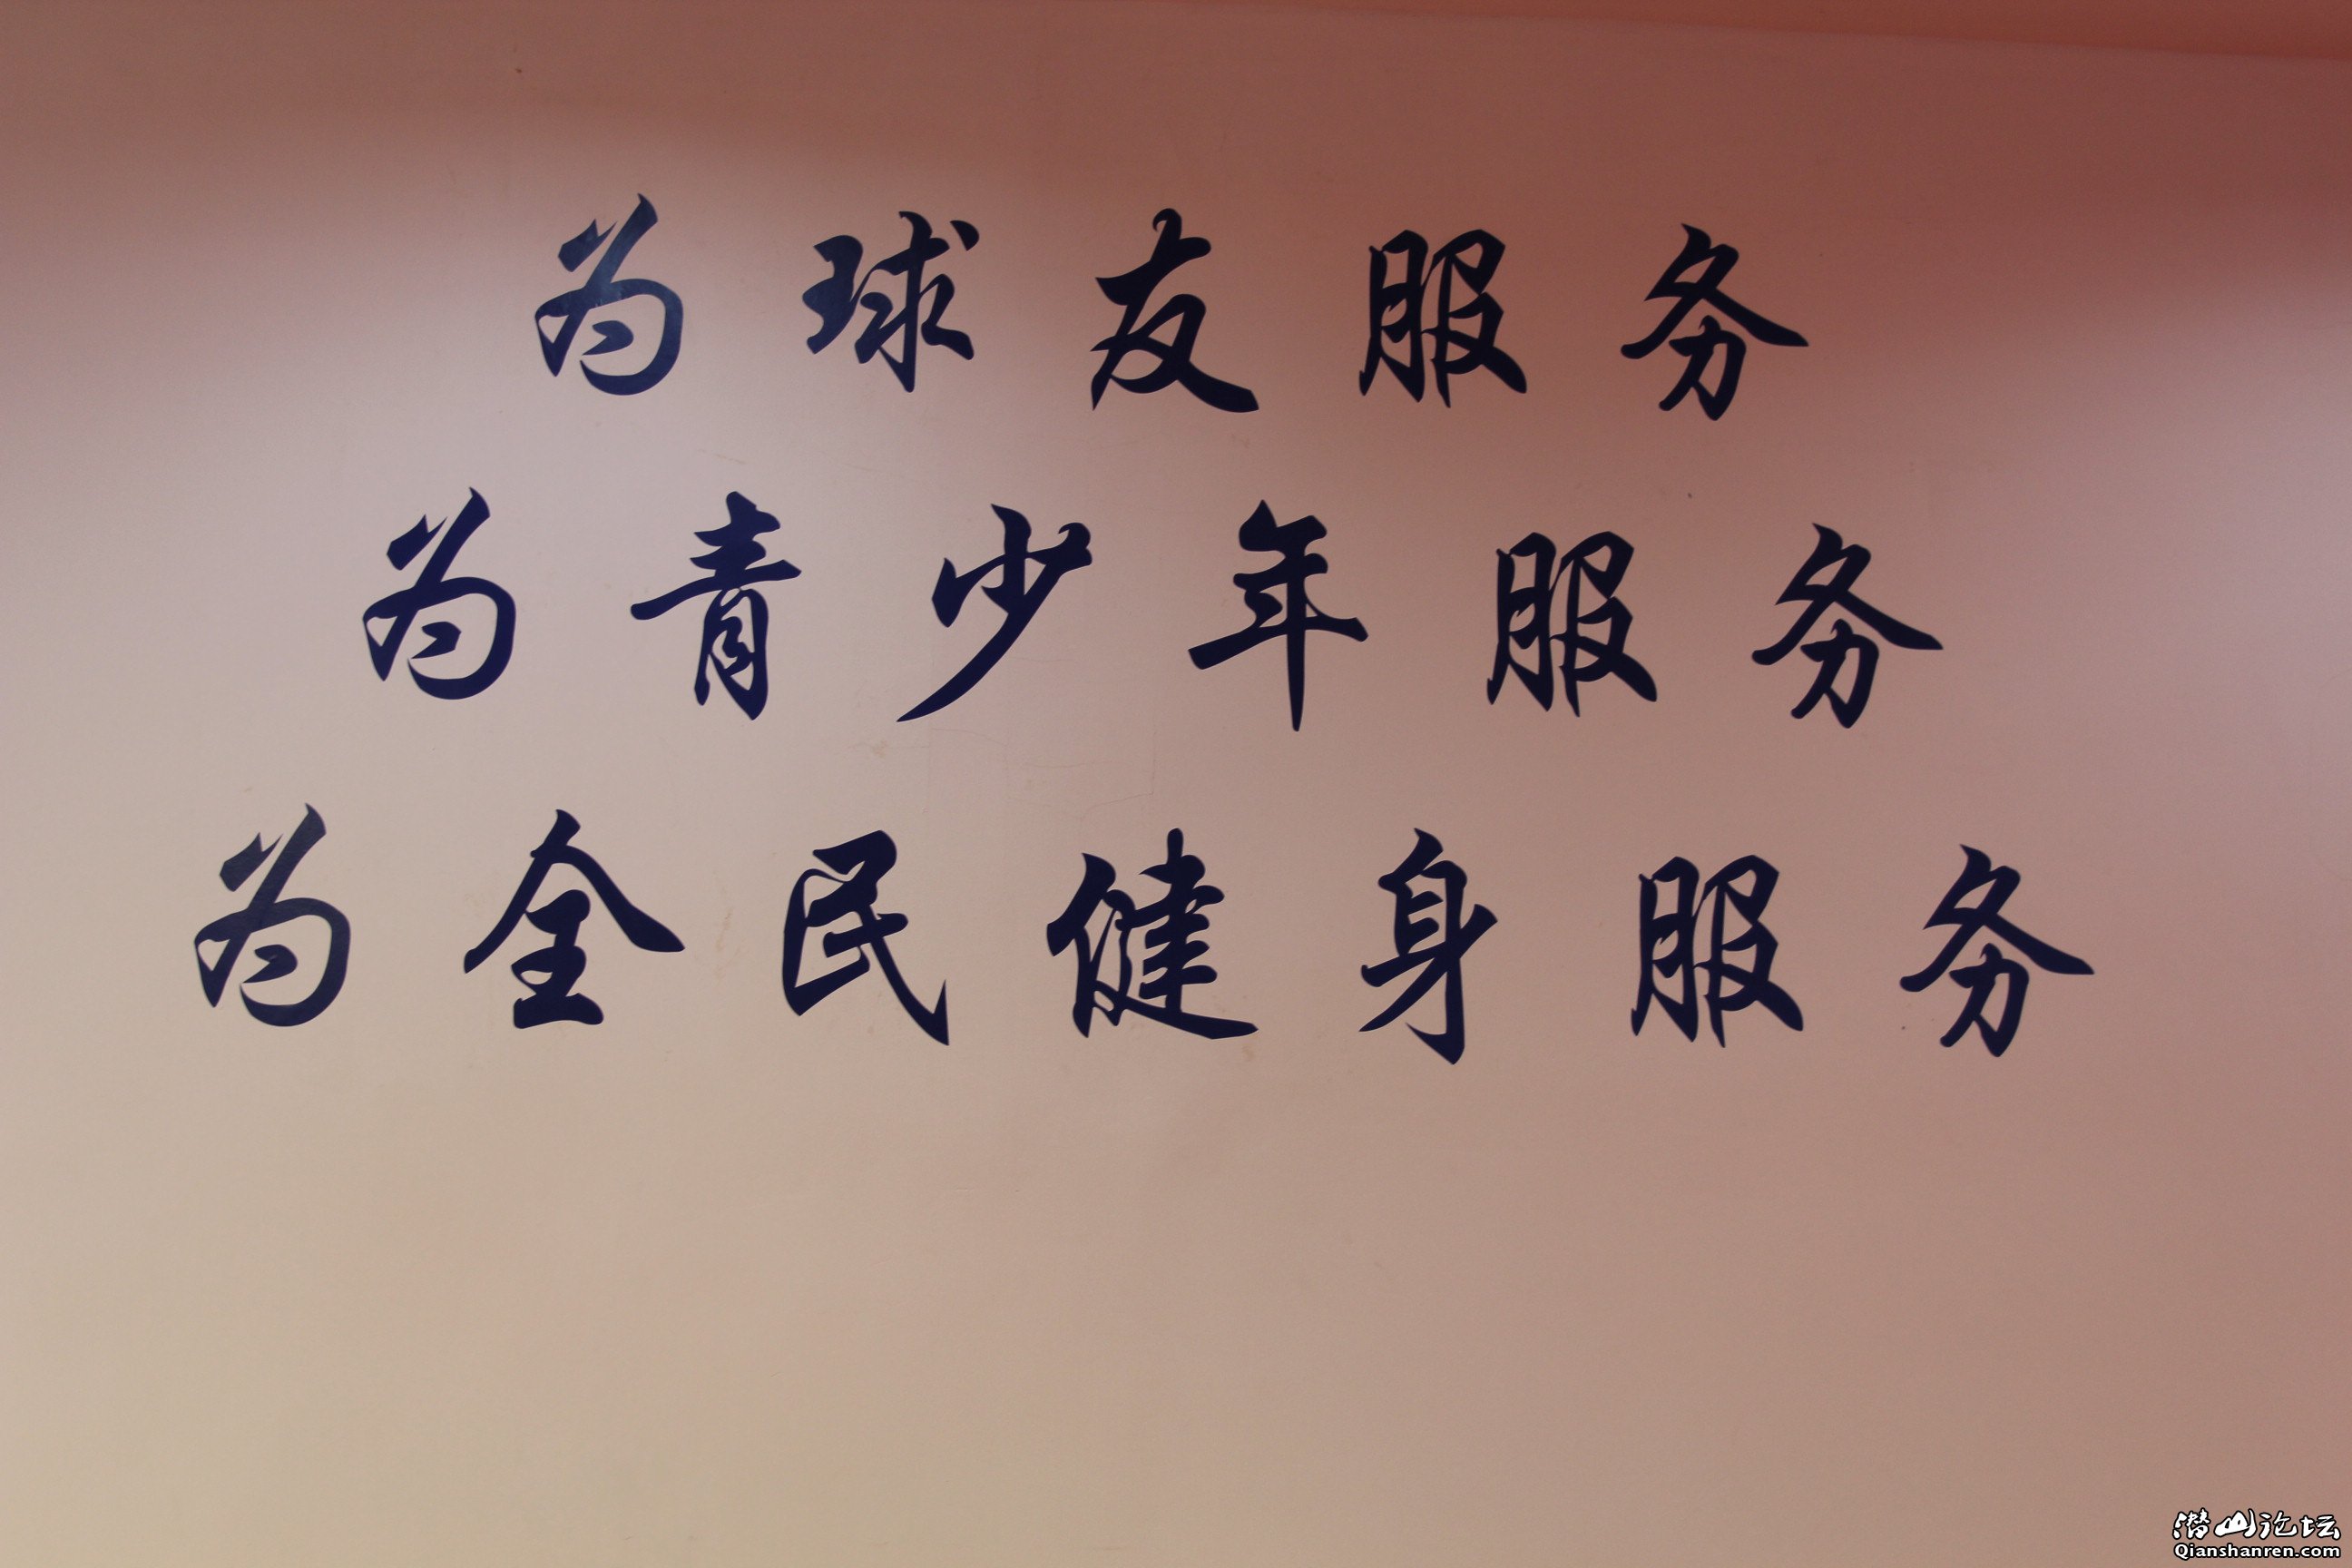 为球友服务
为青少年服务
为全民健身服务
潜山论坛
Qianshanren.com